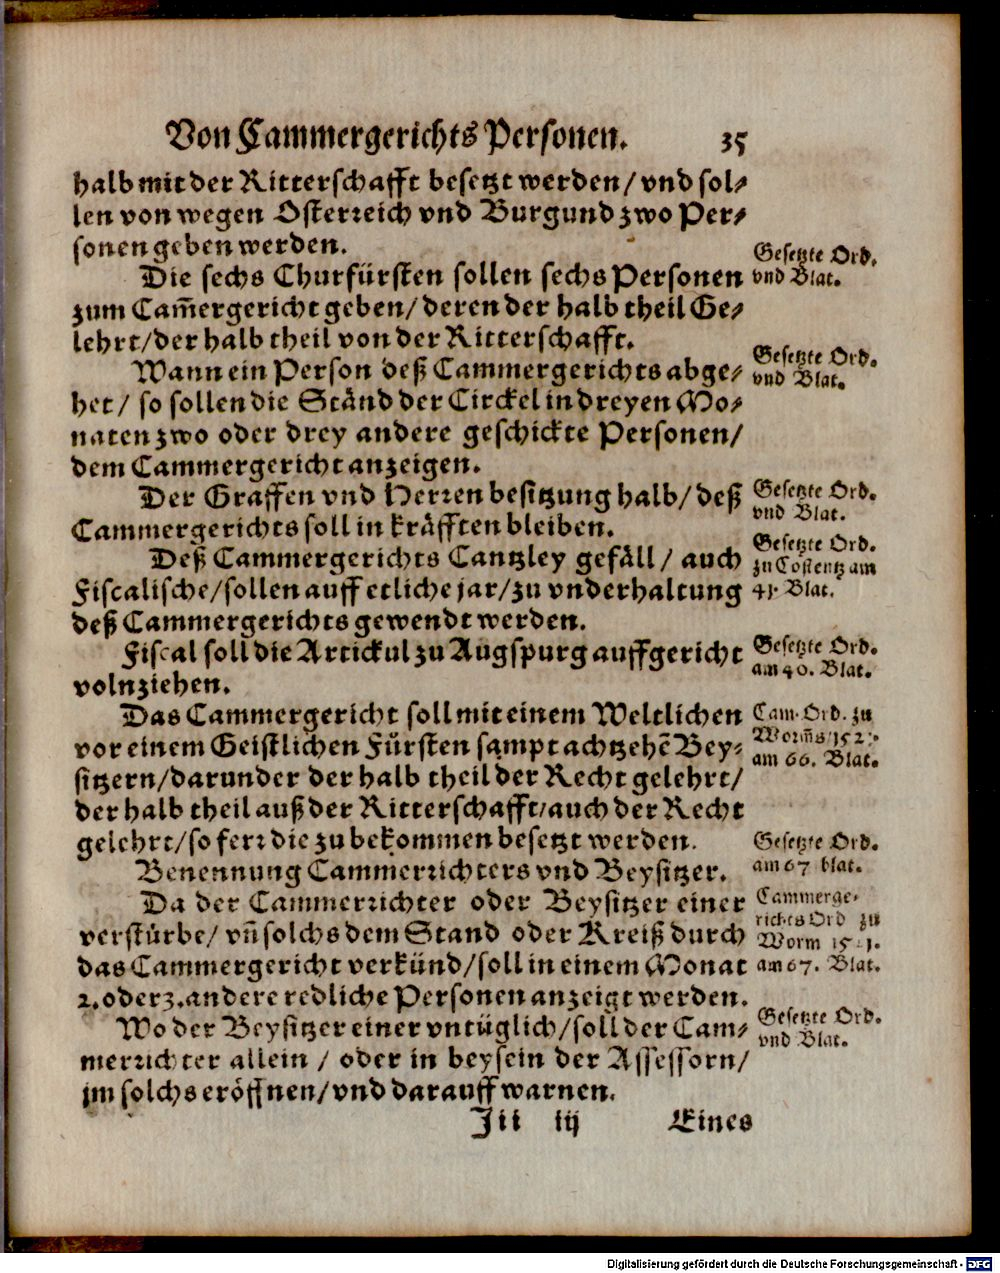 Von Cammergerichts Personen. 35
halb mit der Ritterschafft besetzt werden/ vnd sol⸗
len von wegen Osterreich vnd Burgund zwo Per⸗
sonen geben werden.
Die sechs Churfürsten sollen sechs Personen
zum Cam̄ergericht geben/ deren der halb theil Ge⸗
lehrt/ der halb theil von der Ritterschafft.
Wann ein Person deß Cammergerichts abge⸗
het/ so sollen die Ständ der Circkel in dreyen Mo⸗
naten zwo oder drey andere geschickte Personen/
dem Cammergericht anzeigen.
Der Graffen vnd Herren besitzung halb/ deß
Cammergerichts soll in kräfften bleiben.
Deß Cammergerichts Cantzley gefäll/ auch
Fiscalische/ sollen auff etliche jar/ zu vnderhaltung
deß Cammergerichts gewendt werden.
Fiscal soll die Artickul zu Augspurg auffgericht
volnziehen.
Das Cammergericht soll mit einem Weltlichen
vor einem Geistlichen Fürsten sampt achtzehē Bey⸗
sitzern/ darunder der halb theil der Recht gelehrt/
der halb theil auß der Ritterschafft/ auch der Recht
gelehrt/ so ferr die zu bekommen besetzt werden.
Benennung Cammerrichters vnd Beysitzer.
Da der Cammerrichter oder Beysitzer einer
verstürbe/ vn̄ solchs dem Stand oder Kreiß durch
das Cammergericht verkünd/ soll in einem Monat
2. oder 3. andere redliche Personen anzeigt werden.
Wo der Beysitzer einer vntüglich/ soll der Cam⸗
merrichter allein/ oder in beysein der Assessorn/
jm solchs eröffnen/ vnd darauff warnen.
Jii iij Eines
Gesetzte Ord.
vnd Blat.
Gesetzte Ord.
vnd Blat.
Gesetzte Ord.
vnd Blat.
Gesetzte Ord.
zu Costentz am
41. Blat.
Gesetzte Ord.
am 40. Blat.
Cam. Ord. zu
Worm̄s
am 66. Blat.
Gesetzte Ord.
am 67 blat.
Cammerge⸗
richts Ord zu
Worm
am 67. Blat.
Gesetzte Ord.
vnd Blat.
Digitalisierung gefördert durch die Deutsche Forschungsgemeinschaft - DFG